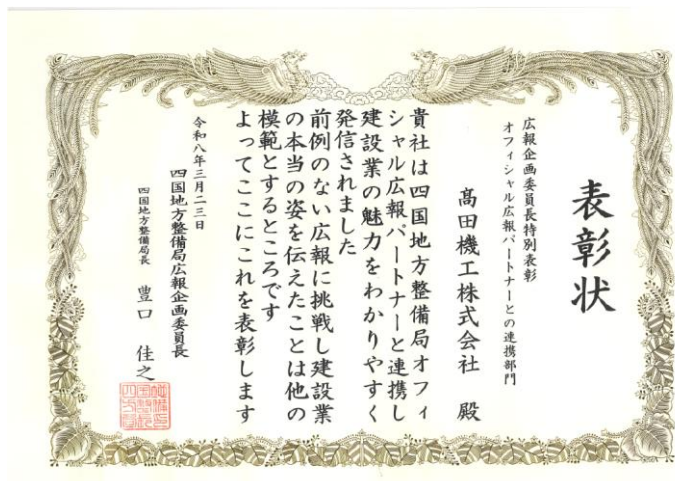 表彰状
広報企画委員長特別表彰
オフィシャル広報パートナーとの連携部門
髙田機工株式会社 殿
貴社は四国地方整備局オフィ
シャル広報パートナーと連携し
建設業の魅力をわかりやすく
発信されました
前例のない広報に挑戦し建設業
の本当の姿を伝えたことは他の
模範とするところです
よってここにこれを表彰します
令和八年三月二三日
四国地方整備局広報企画委員長
四国地方整備局長 豊口佳之